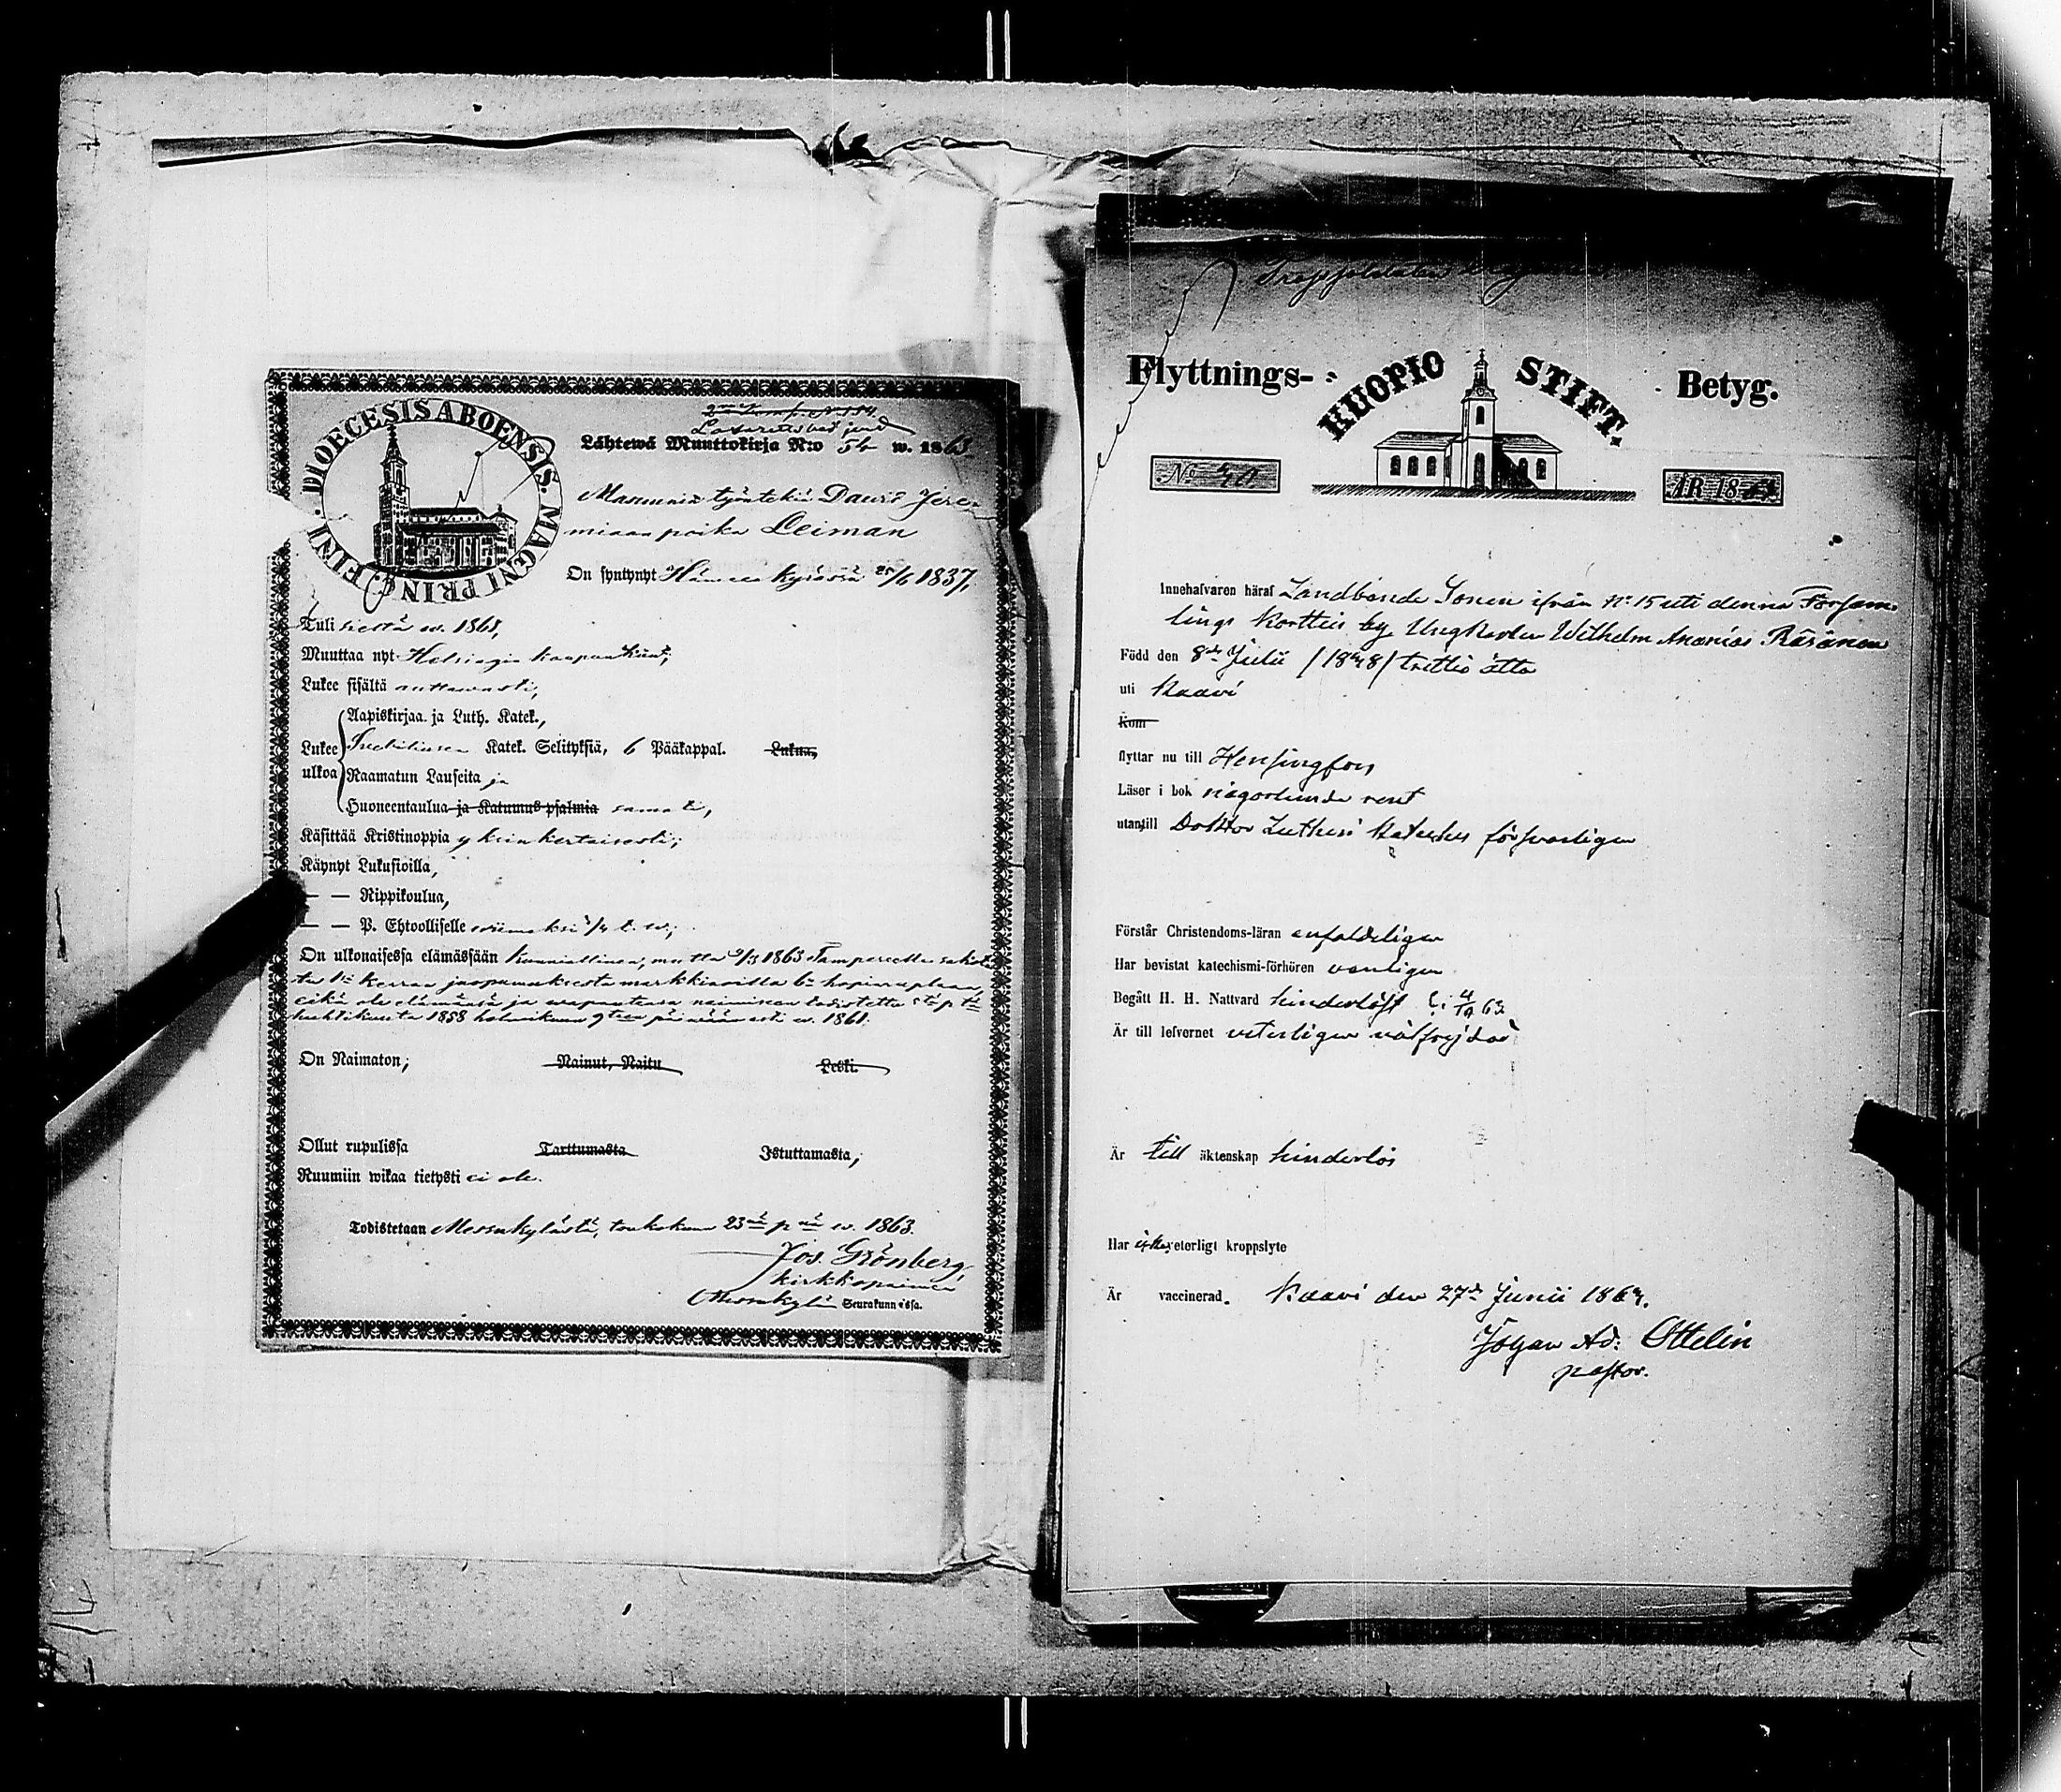 DIOECESIS ABOENSIS. MAGNI PRINC. FINL.
Lähtewä Muuttokirja N:o 54 w. 1863
Dawid Jere-
miaan poika Leiman
On syntynyt Hämeen kyrössä 25/6 1837,
Tuli sieltä w. 1861,
Muuttaa nyt Helsingin kaupunkiin;
Lukee sisältä auttawasti,
Aapiskirjaa ja Luth. Katek.,
Lukee Katek. Selityksiä, 6 Pääkappal. Lukua,
ulkoa Raamatun Lauseita ja
Huoneentaulua ja Katumus-psalmia samate,
Käsittää Kristinoppia yksinkertaisesti;
Käynyt Lukusioilla,
— — Rippikoulua,
— — P. Ehtoolliselle wiimeksi
On ulkonaisessa elämässään kunniallinen, mutta 9/3 1863 Tampereella
1858 w. 1861.
On Naimaton; Nainut, Naitu Leski.
Ollut rupulissa Tarttumasta Istuttamasta,
Ruumiin wikaa tietysti ei ole.
Todistetaan Messukylästä, toukokuun 23 p w. 1863.
Jos. Grönberg,
kirkkopaimen
Messukylän Seurakunnassa.
Flyttnings- KUOPIO STIFT. Betyg.
No 40 ÅR 18
Innehafvaren häraf Landbonde Sonen ifrån No 15 uti denna Försam-
lings Kortteis by, Ungkarlen Wilhelm Ananias Räsänen
Född den 8de Julii /1838/ trettio åtta
uti Kaavi
Kom
flyttar nu till Helsingfors
Läser i bok någorlunda rent
utantill Doktor Lutheri Kateches försvarligen
Förstår Christendoms-läran enfaldeligen
Har bevistat katechismi-förhören vanligen
Begått H. H. Nattvard hinderlöst
Är till lefvernet veterligen välfrejdad
Är till äktenskap hinderlös
Har icke veterligt kroppslyte
Är vaccinerad. Kaavi den 27de Junii 1863.
Johan Ad: Ottelin
pastor.